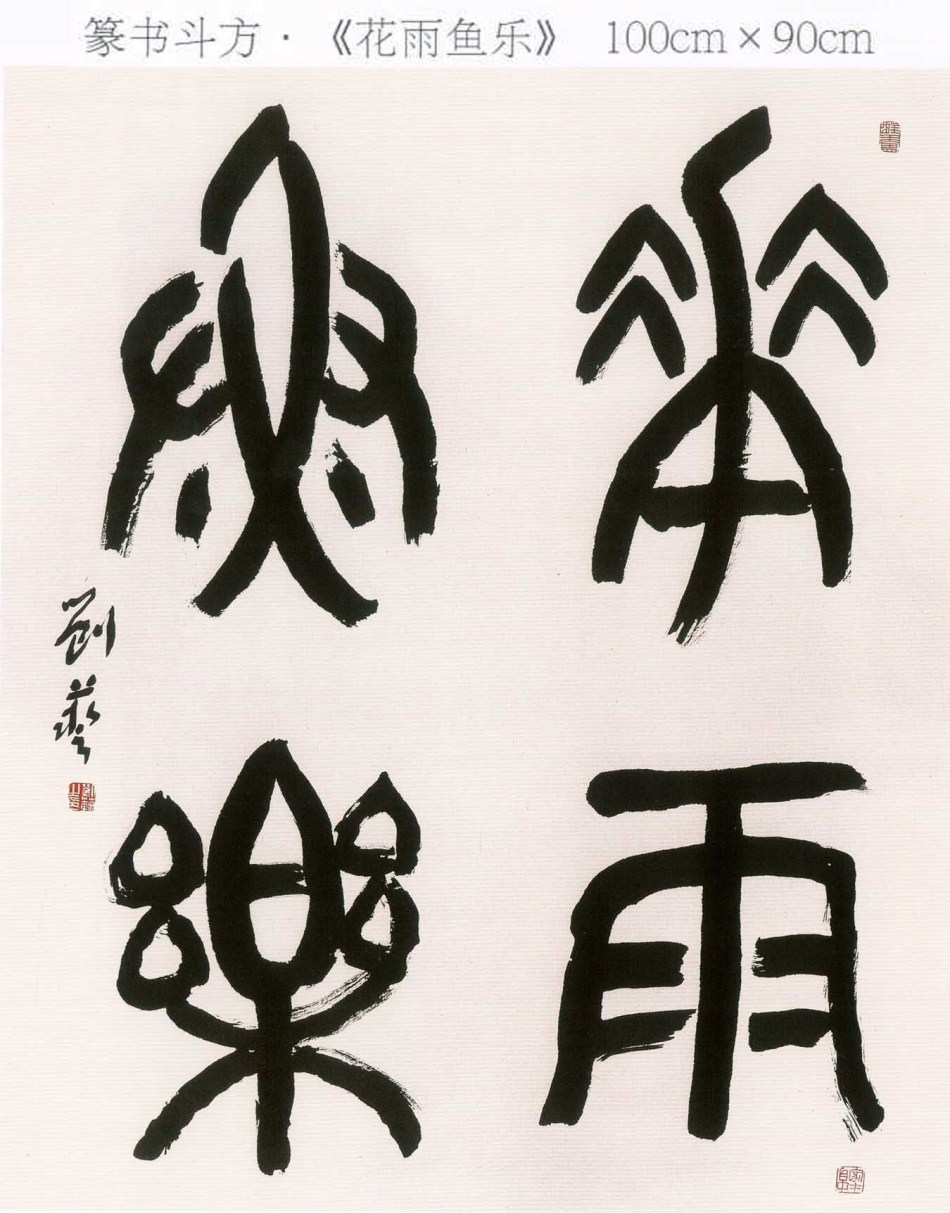 篆书斗方·《花雨鱼乐》 100cm×90cm
華雨
魚樂
劉藝